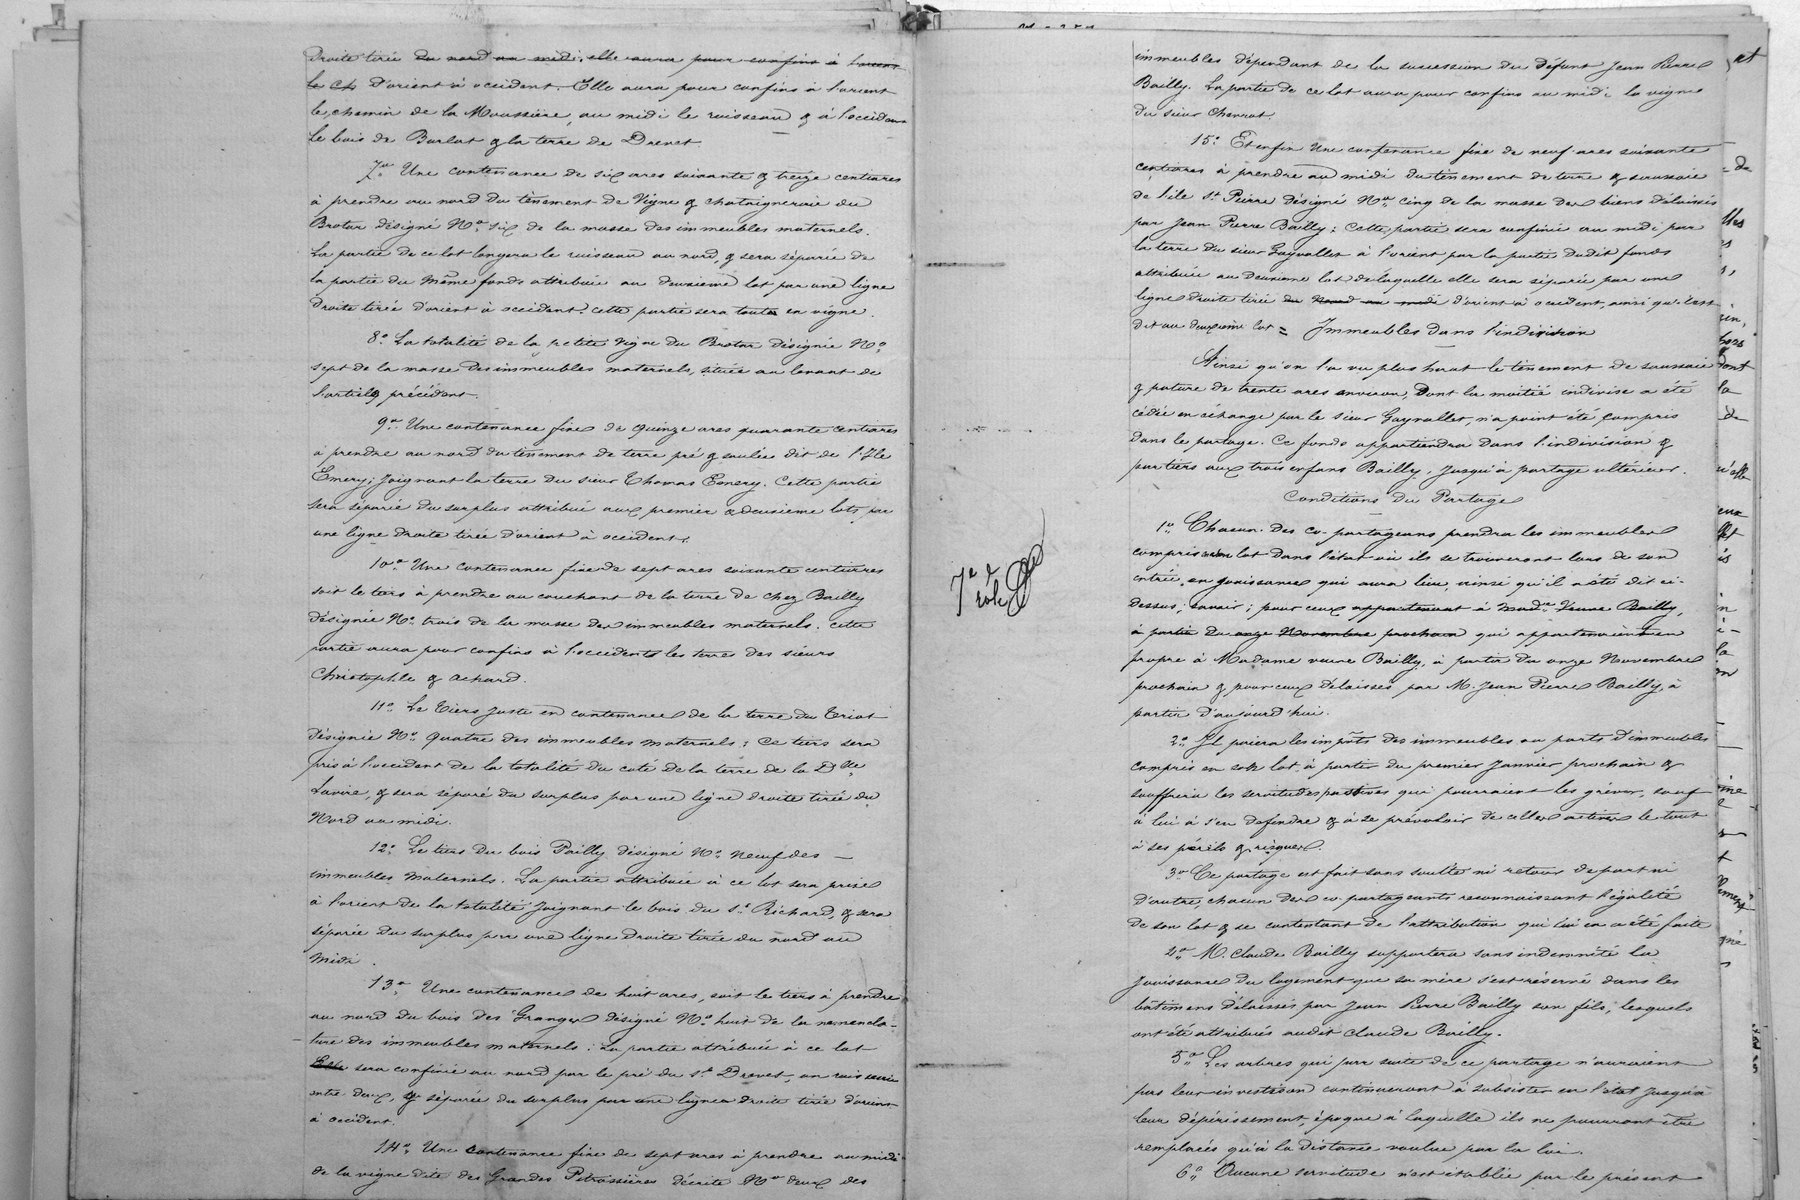 droite tirée du nord au midi, elle aura pour confins à l'orient
le ch d'orient à occident. Elle aura pour confins à l'orient
le chemin de la Moussière, au midi le ruisseau & à l'occident
le bois de Burlat & la terre de Drevet.
7° Une contenance de six ares soixante & treize centiares
à prendre au nord du tènement de Vigne & chataigneraie du
Brotar désigné N° six de la masse des immeubles maternels.
La partie de ce lot longera le ruisseau au nord, & sera séparée de
la partie du même fonds attribuée au deuxième lot par une ligne
droite tirée d'orient à occident. cette partie sera toute en vigne.
8° La totalité de la petite vigne du Brotar désignée N°
sept de la masse des immeubles maternels, située au levant de
l'article précédent.
9° Une contenance fixe de quinze ares quarante centiares
à prendre au nord du tènement de terre pré & saulée dit de l'Ile
Emery; joignant la terre du sieur Thomas Emery. Cette partie
sera séparée du surplus attribué aux premier & deuxieme lots, par
une ligne droite tirée d'orient à occident.
10° Une contenance fixe de sept ares soixante centiares
soit le tiers à prendre au couchant de la terre de chez Bailly
désignée N° trois de la masse des immeubles maternels. Cette
partie aura pour confins à l'occident les terres des sieurs
Christophle & Achard.
11° Le Tiers juste en contenance de la terre du Triot
désignée N° quatre des immeubles maternels; Ce tiers sera
pris à l'occident de la totalité du coté de la terre de la Dlle
Lavire, & sera séparé du surplus par une ligne droite tirée du
Nord au midi.
12° Le tiers du bois Pailly désigné N° neuf des —
immeubles maternels. La partie attribuée à ce lot sera prise
à l'orient de la totalité joignant le bois du Sr Richard, & sera
séparée du surplus par une ligne droite tirée du nord au
midi.
13° Une contenance de huit ares, soit le tiers à prendre
au nord du bois des Granges désigné N° huit de la nomencla-
ture des immeubles maternels. La partie attribuée à ce lot
sera confinée au nord par le pré du Sr Drevet, un ruisseau
entre deux, & séparée du surplus par une ligne droite tirée d'orient
à occident.
14° Une contenance fixe de sept ares à prendre au midi
de la vigne dite des Grandes Pétrossières décrite N° deux des
7e &
role
immeubles dépendant de la succession du défunt Jean Pierre
Bailly. La partie de ce lot aura pour confins au midi la vigne
du sieur Charrat.
15° Et enfin Une contenance fixe de neuf ares soixante
centiares à prendre au midi du tènement de terre & saussaie
de l'ile St Pierre désigné N° cinq de la masse des biens délaissés
par Jean Pierre Bailly; Cette partie sera confinée au midi par
la terre du sieur Gayvallet à l'orient par la partie dudit fonds
attribuée au deuxieme lot de laquelle elle sera séparée par une
ligne droite tirée du Nord au midi d'orient à occident, ainsi qu'il est
dit au deuxième lot = Immeubles dans l'indivision
Ainsi qu'on l'a vu plus haut le tènement de saussaie
& pature de trente ares environ, Dont la moitié indivise a été
cédée en échange par le sieur Gayvallet, n'a point été compris
dans le partage. Ce fonds appartiendra dans l'indivision &
par tiers aux trois enfans Bailly, jusqu'à partage ultérieur.
Conditions du Partage
1° Chacun des co-partageans prendra les immeubles
compris en son lot dans l'état où ils se trouveront lors de son
entrée en jouissance qui aura lieu, ainsi qu'il a été dit ci-
dessus; savoir; pour ceux appartenant à made Veuve Bailly,
à partir du onze Novembre prochain qui appartenaient en
propre à Madame veuve Bailly, à partir du onze Novembre
prochain & pour ceux délaissés par M. Jean Pierre Bailly, à
partir d'aujourd'hui.
2° Il paiera les impôts des immeubles ou parts d'immeubles
compris en son lot, à partir du premier janvier prochain &
souffrira les servitudes passives qui pourraient les gréver, sauf
à lui à s'en defendre & à se prévaloir de celles actives le tout
à ses périls & risques.
3° Ce partage est fait sans soulte ni retour de part ni
d'autre, chacun des co-partageants reconnaissant l'égalité
de son lot & se contentant de l'attribution qui lui en a été faite
4° M. Claude Bailly supportera sans indemnité la
jouissance du logement que sa mère s'est réservé dans les
bâtimens délaissés par Jean Pierre Bailly son fils, lesquels
ont été attribués audit Claude Bailly.
5° Les arbres qui par suite de ce partage n'auraient
pas leur investison continueront à subsister en l'état jusqu'à
leur dépérissement, époque à laquelle ils ne pourront être
remplacés qu'à la distance voulue par la loi.
6° Aucune servitude n'est établie par le présent